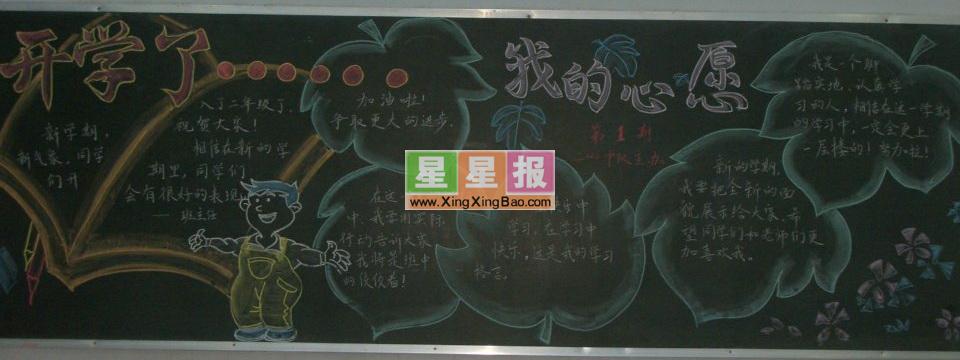 开学了……
新学期，
新气象，同学
们开
入了二年级了，
祝贺大家！
相信在新的学
期里，同学们
会有很好的表现
——班主任
加油啦！
争取更大的进步。
在这
中，我要用实际
行动告诉大家
我将是班中
的佼佼者！
我的心愿
第1期
学习，在学习中
快乐，这是我的学习
格言。
新的学期，
我要把全新的面
貌展示给大家，希
望同学们和老师们更
加喜欢我。
我是一个脚
踏实地、认真学
习的人，相信在这一学期
的学习中，一定会更上
一层楼的！努力啦！
星星报
www.XingXingBao.com